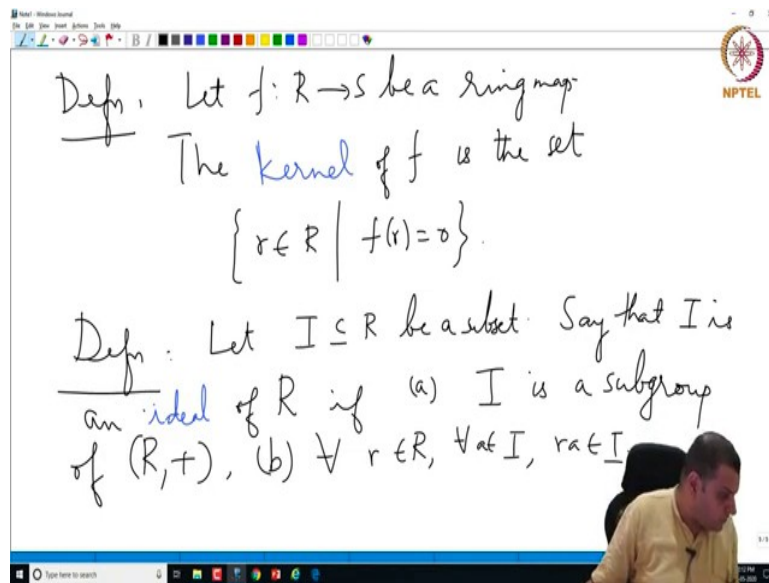 Note1 - Windows Journal
File Edit View Insert Actions Tools Help
NPTEL
Defn. Let f: R → S be a ring map.
The kernel of f is the set
{ r ∈ R | f(r) = 0 }.
Defn. Let I ⊆ R be a subset. Say that I is
an ideal of R if (a) I is a subgroup
of (R, +), (b) ∀ r ∈ R, ∀ a ∈ I, ra ∈ I
Type here to search